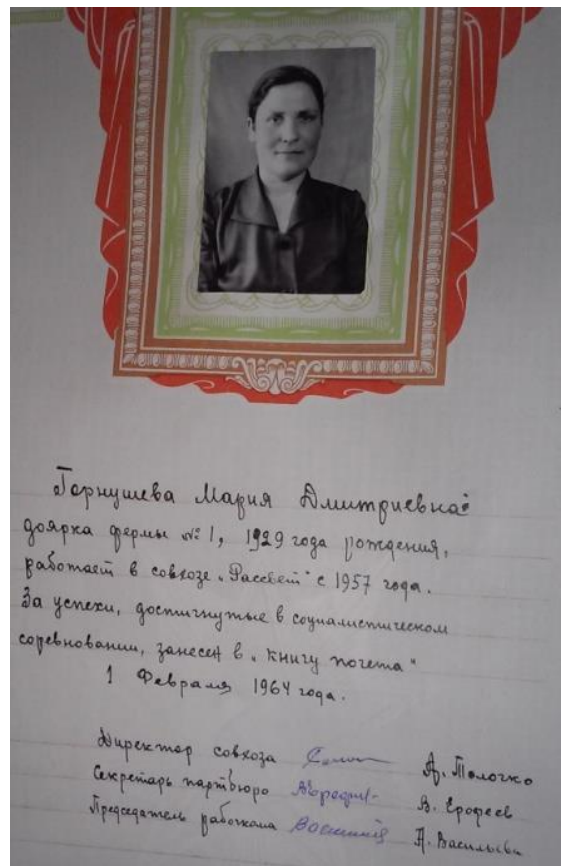 Горнушева Мария Дмитриевна
доярка фермы № 1, 1929 года рождения,
работает в совхозе „Рассвет" с 1957 года.
За успехи, достигнутые в социалистическом
соревновании, занесен в „книгу почета"
1 Февраля 1964 года.
Директор совхоза А. Толочко
Секретарь партбюро В. Ерофеев
Председатель рабочкома А. Васильева